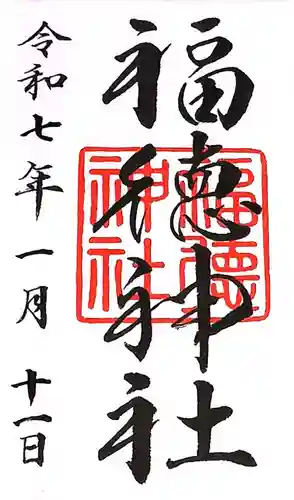 福徳神社
令和七年一月十一日
福徳神社